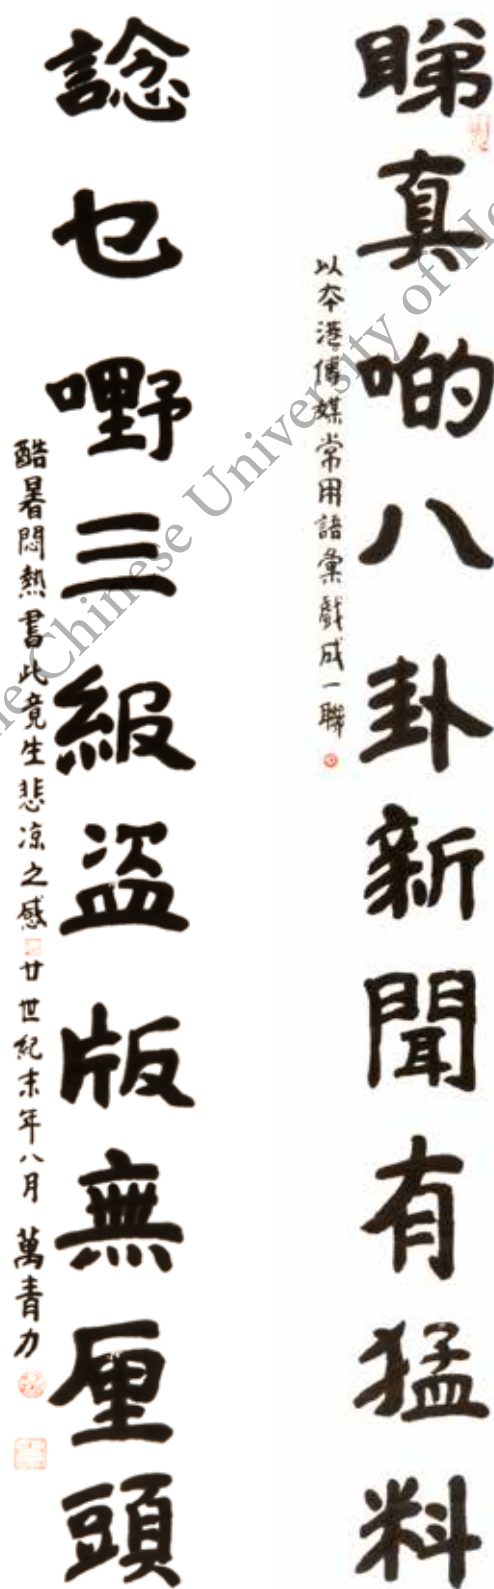 睇真啲八卦新聞有猛料
以本港傳媒常用語彙戲成一聯
諗乜嘢三級盜版無厘頭
酷暑悶熱書此竟生悲凉之感
廿世紀末年八月 萬青力
The Chinese University of